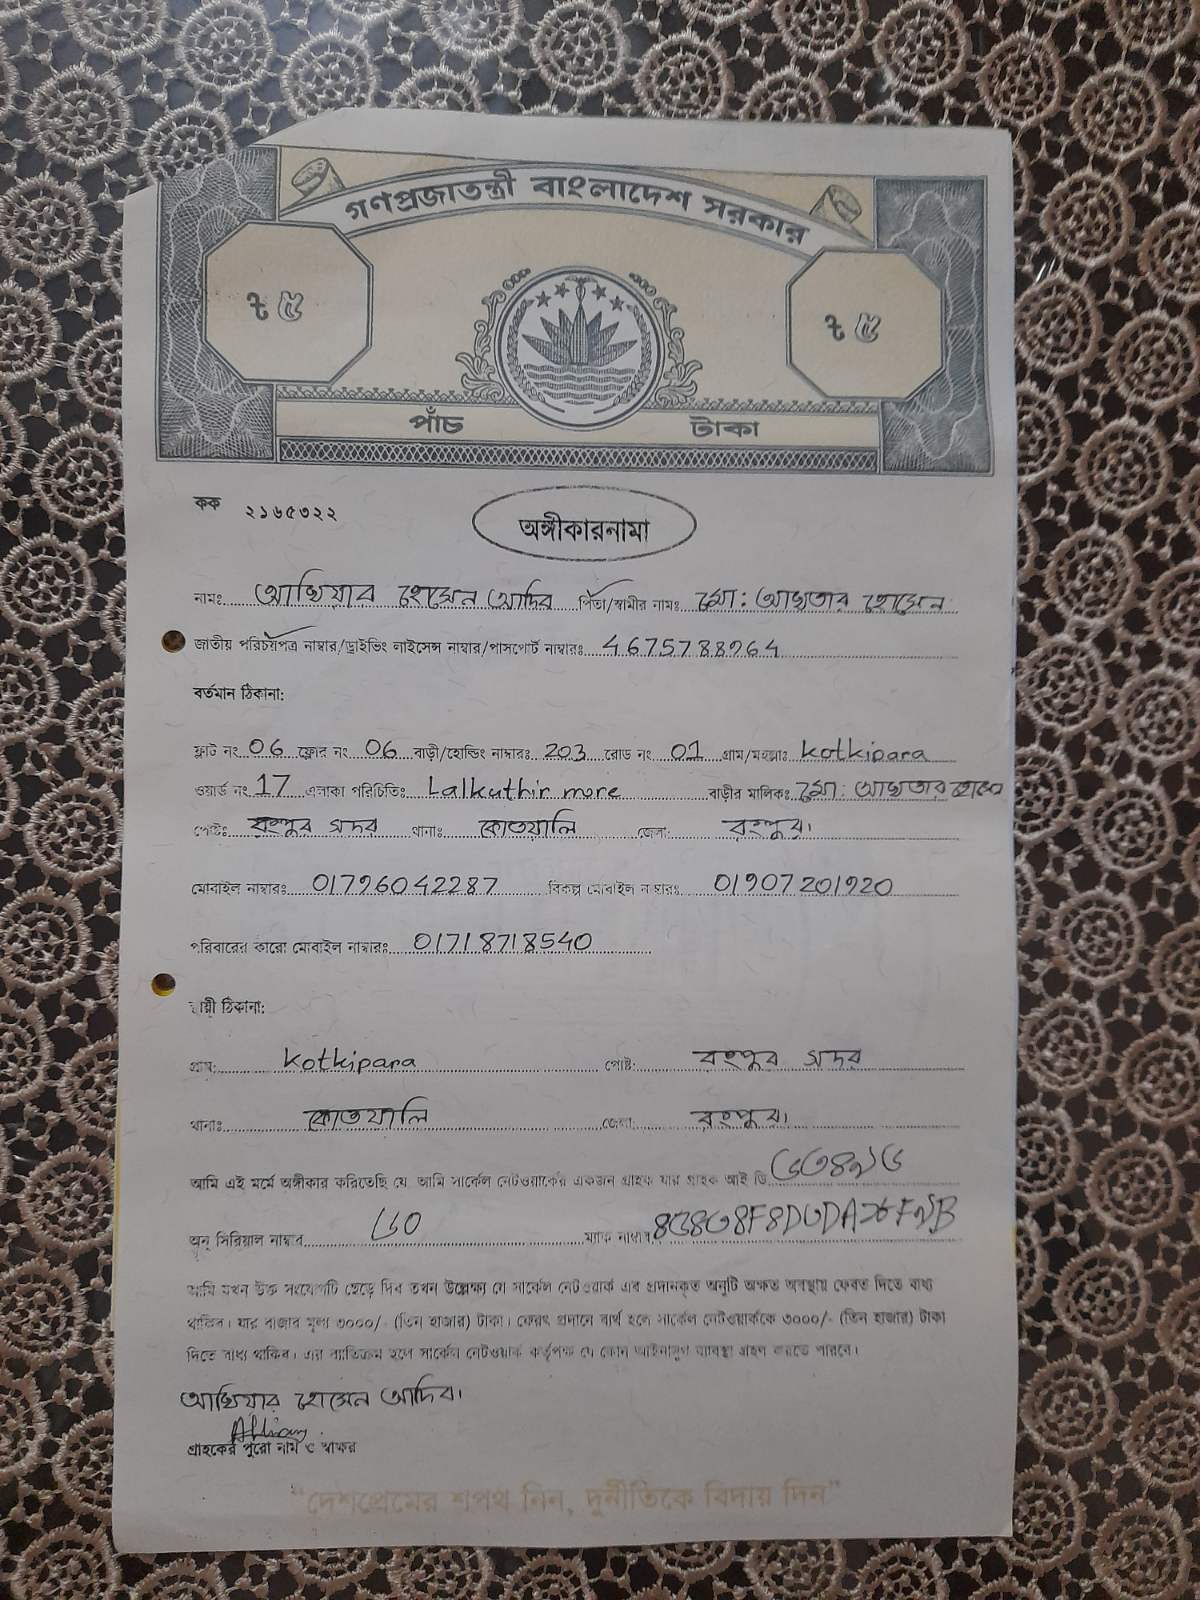 গণপ্রজাতন্ত্রী বাংলাদেশ সরকার
৳ ৫ ৳ ৫
পাঁচ টাকা
কক ২১৬৫৩২২
অঙ্গীকারনামা
নামঃ আখিয়ার হোসেন আদিব পিতা/স্বামীর নামঃ মো: আখতার হোসেন
জাতীয় পরিচয়পত্র নাম্বার/ড্রাইভিং লাইসেন্স নাম্বার/পাসপোর্ট নাম্বারঃ 4675788964
বর্তমান ঠিকানা:
ফ্লাট নং 06 ফ্লোর নং 06 বাড়ী/হোল্ডিং নাম্বারঃ 203 রোড নং 01 গ্রাম/মহল্লাঃ kotkipara
ওয়ার্ড নং 17 এলাকা পরিচিতিঃ Lalkuthir more বাড়ীর মালিকঃ মো: আখতার হোসেন
পোষ্টঃ রংপুর সদর থানাঃ কোতয়ালি জেলা: রংপুর।
মোবাইল নাম্বারঃ 01796042287 বিকল্প মোবাইল নাম্বারঃ 01907201920
পরিবারের কারো মোবাইল নাম্বারঃ 01718718540
স্থায়ী ঠিকানা:
গ্রাম: kotkipara পোষ্ট: রংপুর সদর
থানাঃ কোতয়ালি জেলা: রংপুর।
আমি এই মর্মে অঙ্গীকার করিতেছি যে, আমি সার্কেল নেটওয়ার্কের একজন গ্রাহক যার গ্রাহক আই ডি
অনু সিরিয়াল নাম্বার ম্যাক নাম্বার
আমি যখন উক্ত সংযোগটি ছেড়ে দিব তখন উল্লেক্ষ্য যে সার্কেল নেটওয়ার্ক এর প্রদানকৃত অনুটি অক্ষত অবস্থায় ফেরত দিতে বাধ্য
থাকিব। যার বাজার মূল্য ৩০০০/- (তিন হাজার) টাকা। ফেরৎ প্রদানে ব্যর্থ হলে সার্কেল নেটওয়ার্ককে ৩০০০/- (তিন হাজার) টাকা
দিতে বাধ্য থাকিব। এর ব্যতিক্রম হলে সার্কেল নেটওয়ার্ক কর্তৃপক্ষ যে কোন আইনানুগ ব্যবস্থা গ্রহণ করতে পারবে।
আখিয়ার হোসেন আদিব।
গ্রাহকের পুরো নাম ও স্বাক্ষর
"দেশপ্রেমের শপথ নিন, দুর্নীতিকে বিদায় দিন"